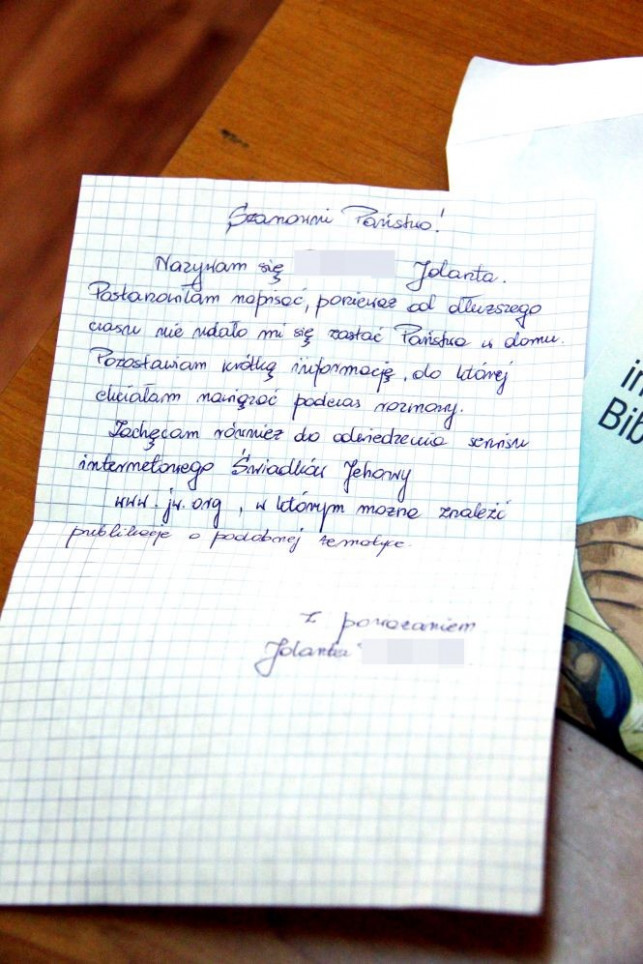 Szanowni Państwo!
Nazywam się Jolanta.
Postanowiłam napisać, ponieważ od dłuższego
czasu nie udało mi się zastać Państwa w domu.
Pozostawiam krótką informację, do której
chciałam nawiązać podczas rozmowy.
Zachęcam również do odwiedzenia serwisu
internetowego Świadków Jehowy
www.jw.org, w którym można znaleźć
publikacje o podobnej tematyce.
z poważaniem
Jolanta